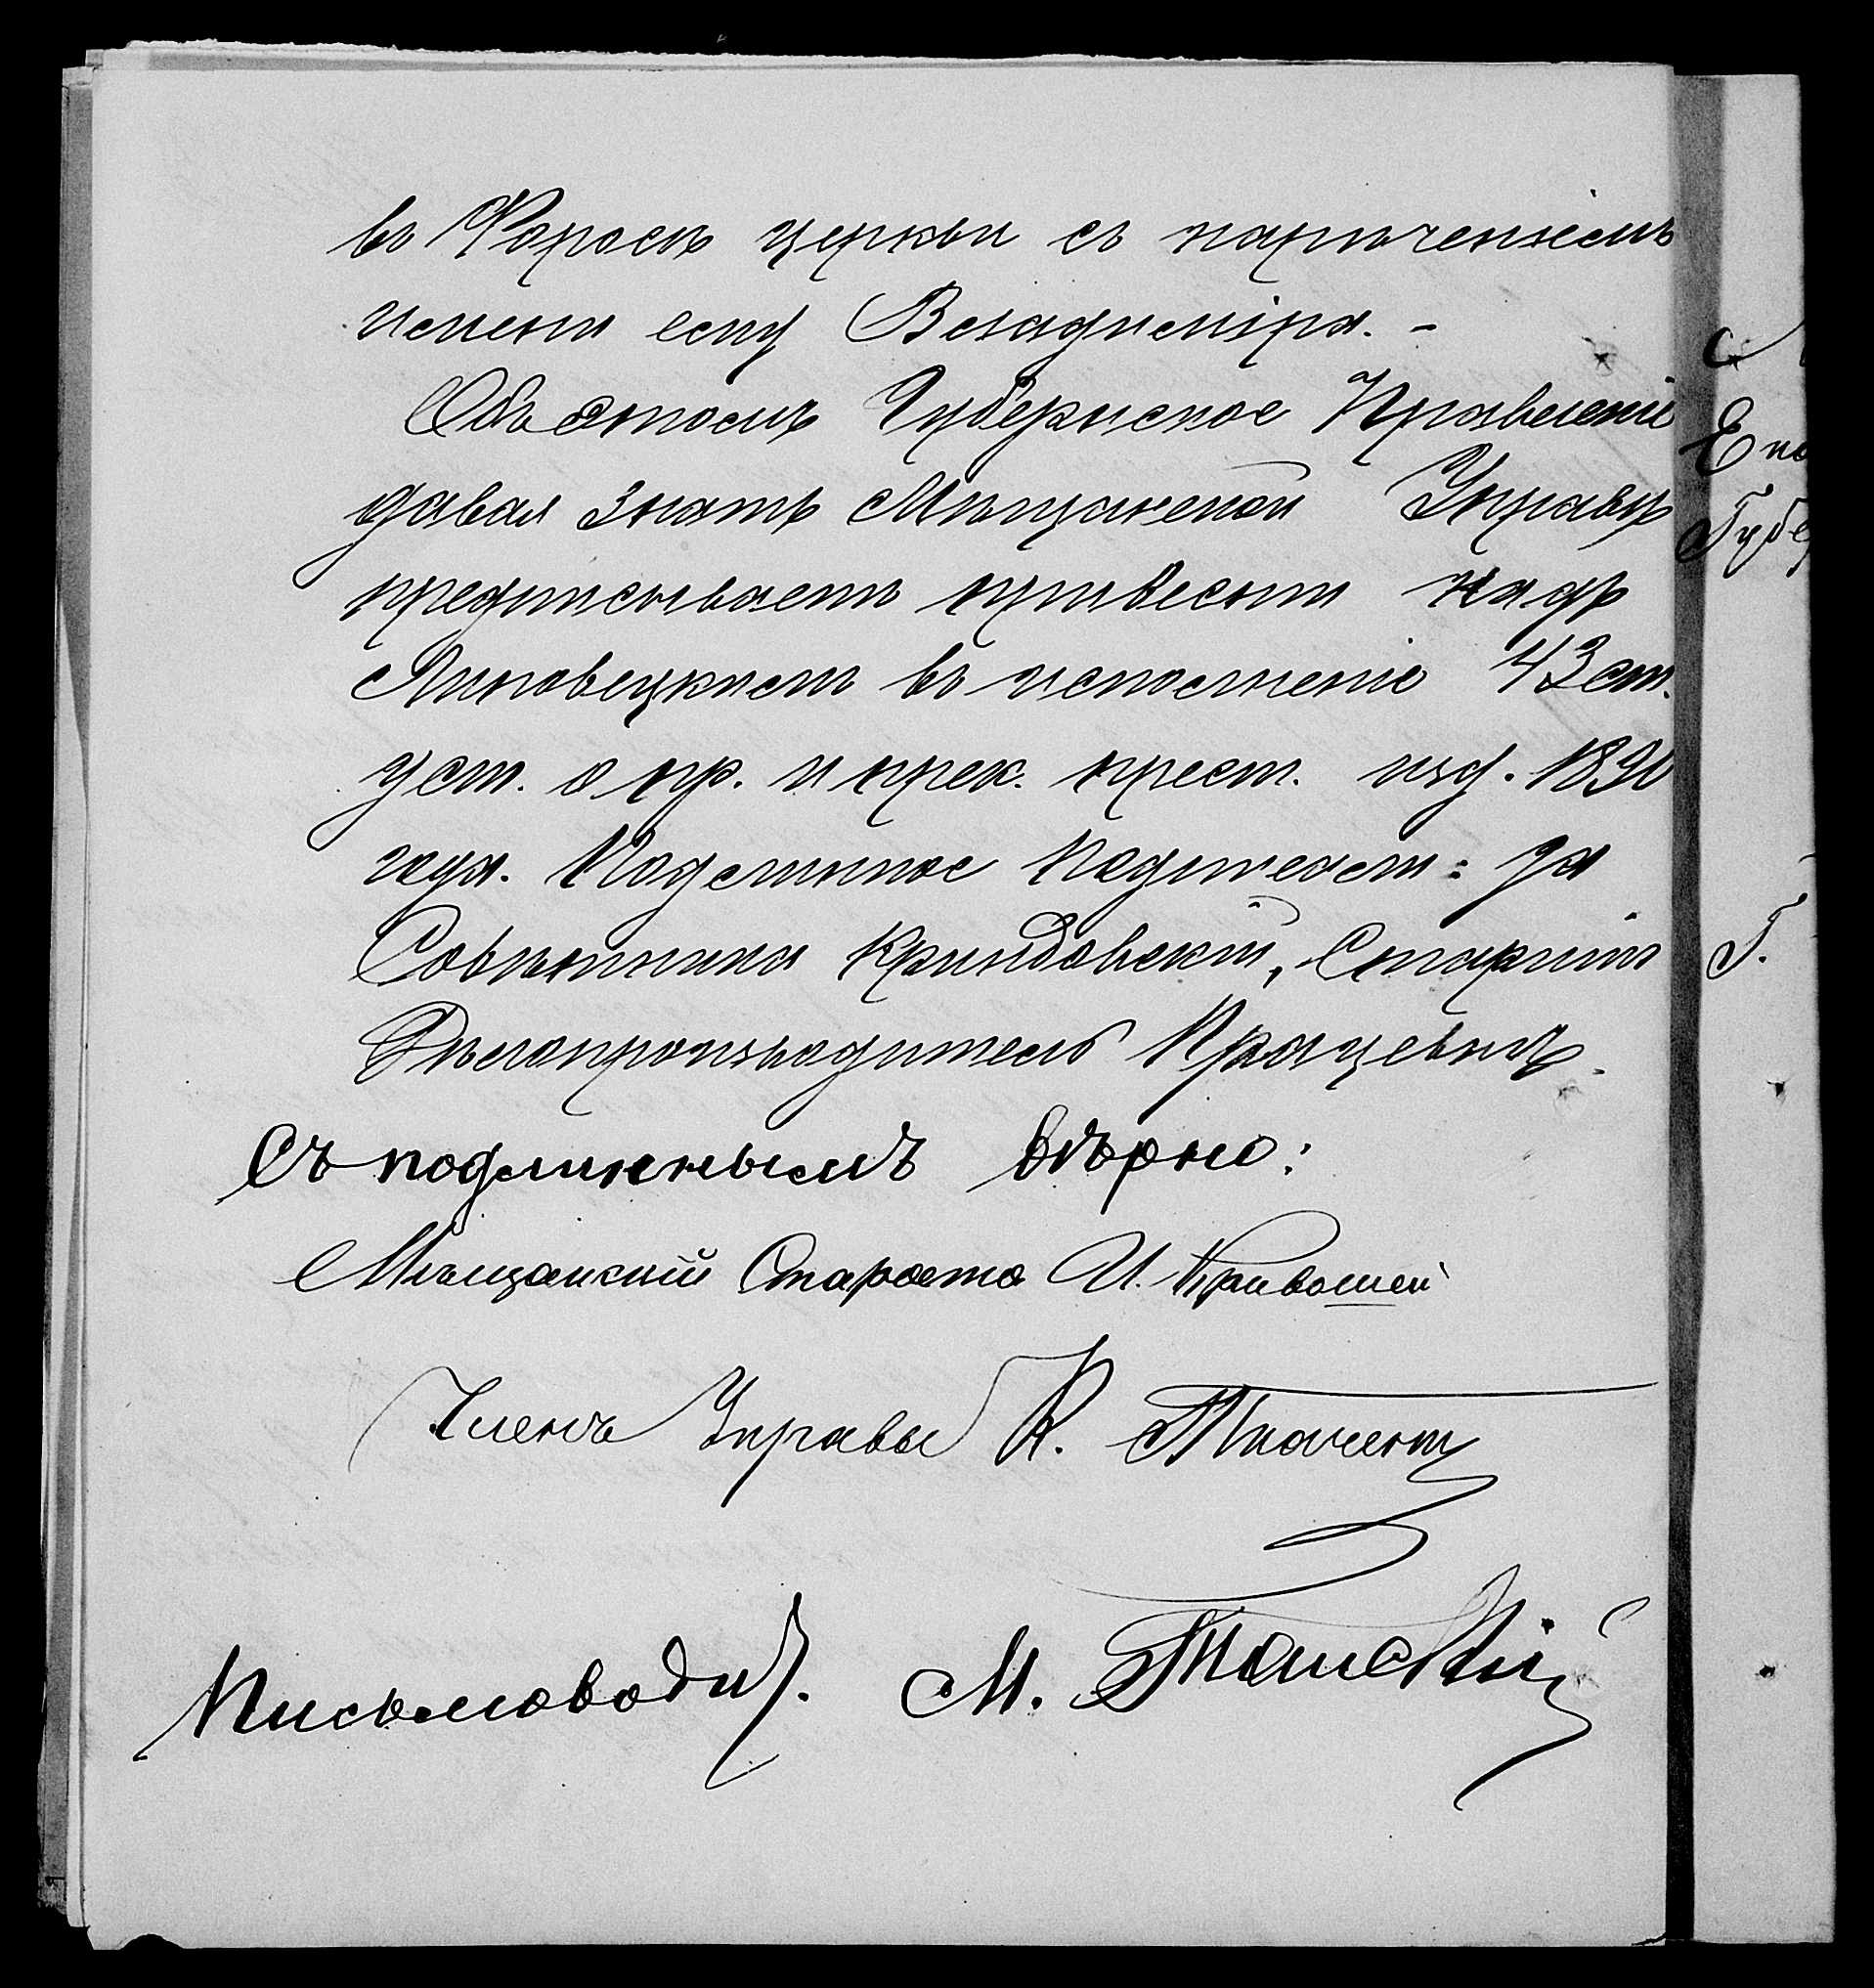 въ Форосѣ церкви съ нарѣченіемъ
имени ему Владиміра. -
Объ этомъ Губернское Правленіе
давая знать Мѣщанской Управѣ
предписываетъ привести надъ
Липовецкимъ въ исполненіе 43 ст.
уст. о пр. и прек. прест. изд. 1890
года. Подлинное подписали: за
Совѣтника Крындовскій, Старшій
Дѣлопроизводитель Крацевичъ.
Съ подлиннымъ вѣрно:
Мѣщанскій Староста И. Кривошей
Членъ Управы К. Ткаченко
Письмоводит. М.
С
Ека
Губе
Г.